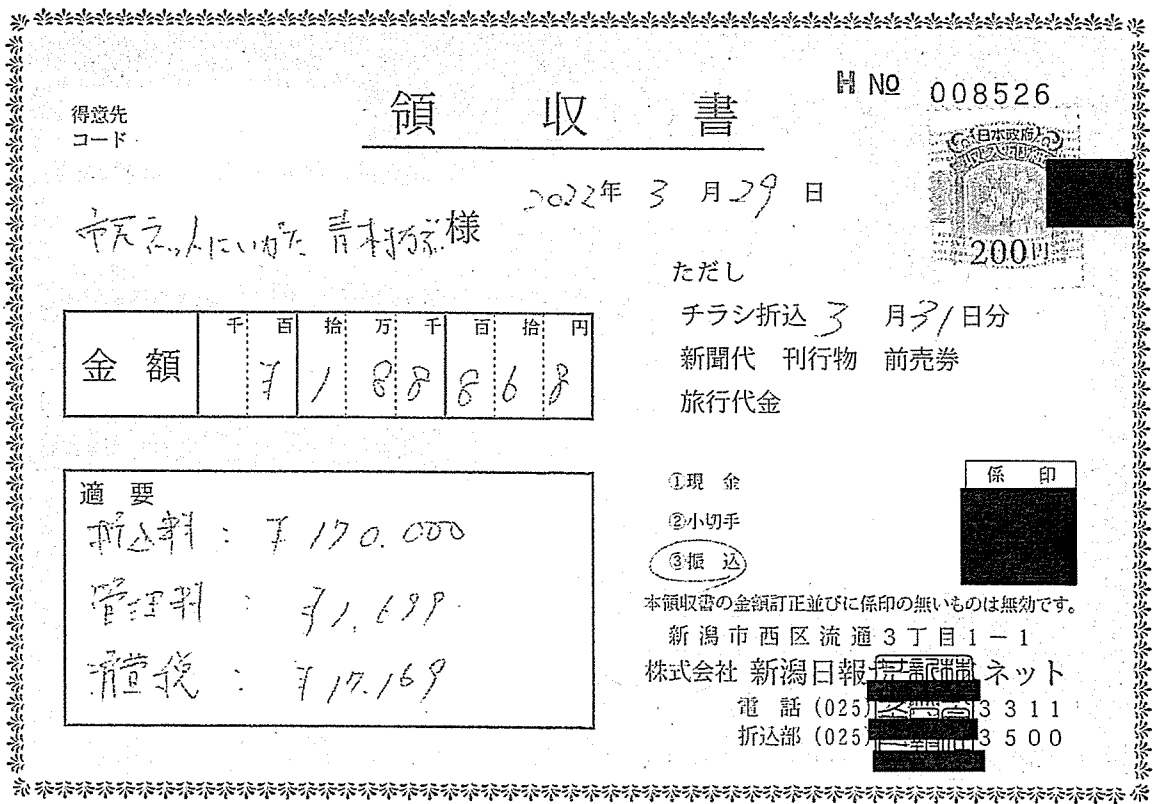 領収書
H № 008526
得意先
コード
日本政府
200円
2022年 3 月 29 日
市民ネットにいがた 青木 様
ただし
チラシ折込 3 月 31 日分
新聞代 刊行物 前売券
旅行代金
金額
千 百 拾 万 千 百 拾 円
¥ 1 8 8 8 6 8
適要
折込料 : ¥170,000
管理料 : ¥1,699
消費税 : ¥17,169
①現金
②小切手
③振込
係印
本領収書の金額訂正並びに係印の無いものは無効です。
新潟市西区流通3丁目1-1
株式会社 新潟日報 ネット
電話 (025) 3311
折込部 (025) 3500